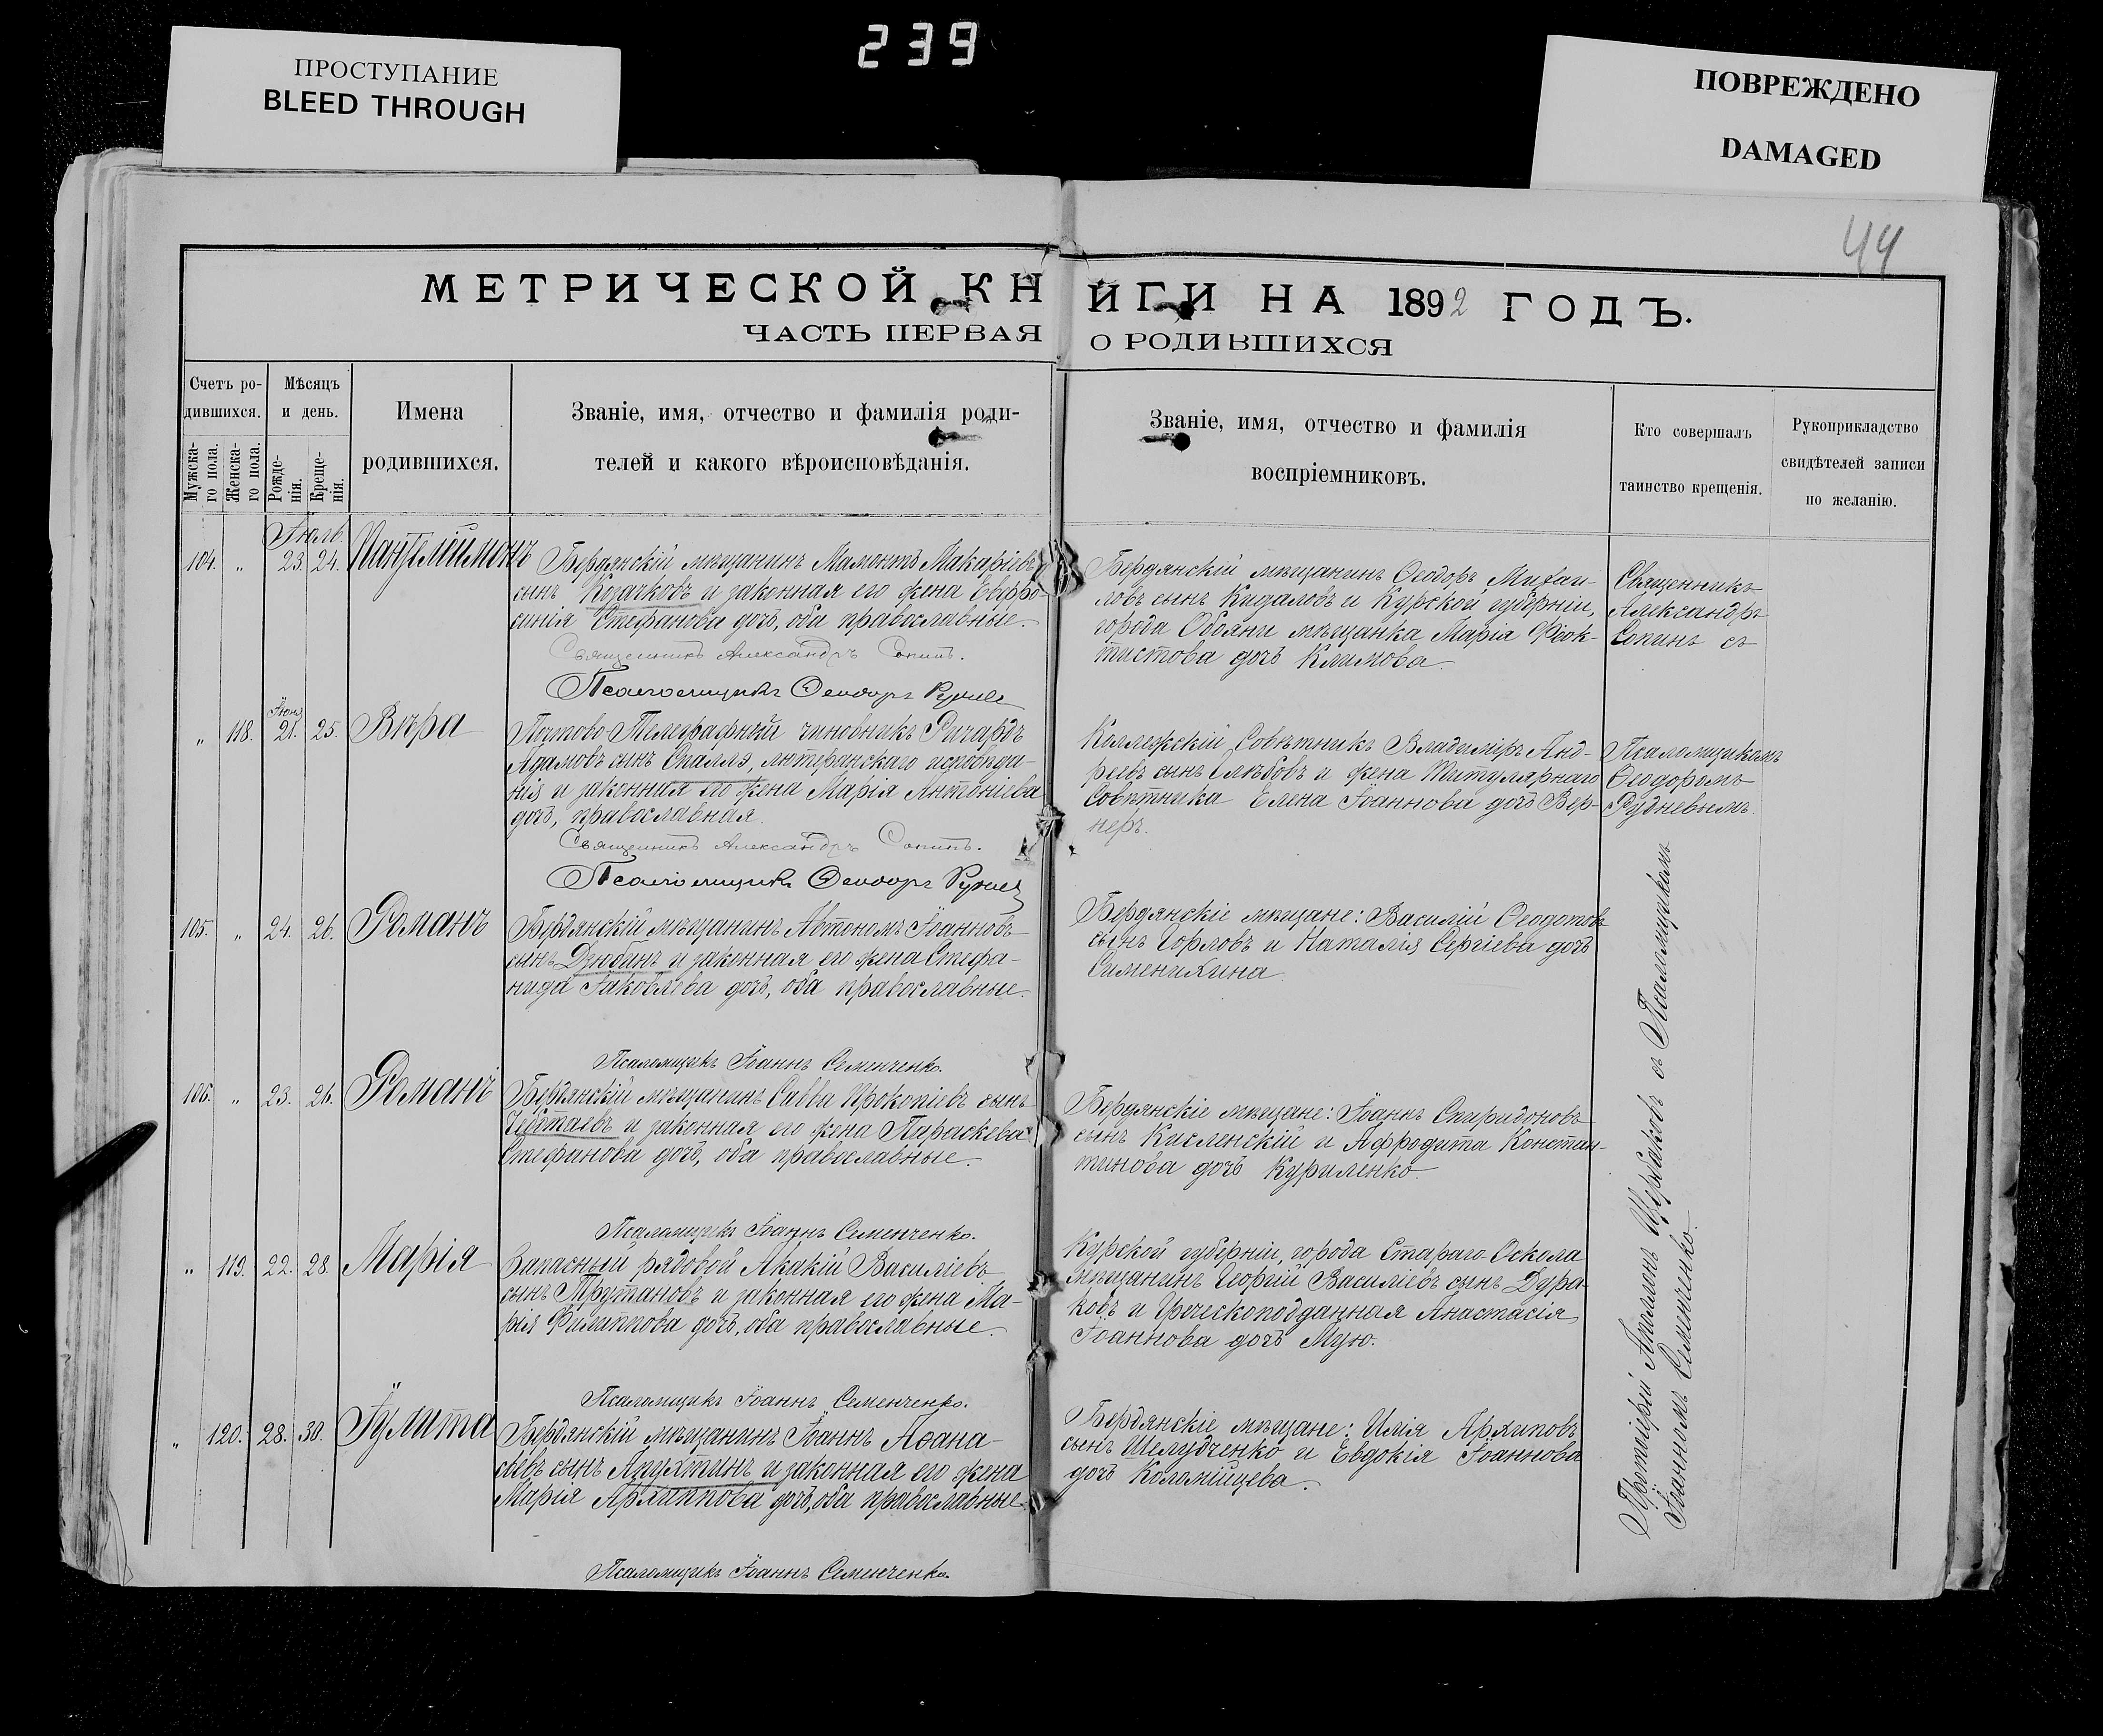 239
ПРОСТУПАНИЕ
BLEED THROUGH
ПОВРЕЖДЕНО
DAMAGED
44
МЕТРИЧЕСКОЙ КНИГИ НА 1892 ГОДЪ.
ЧАСТЬ ПЕРВАЯ О РОДИВШИХСЯ
Счетъ ро-
дившихся.
Мужска-
го пола.
Женска-
го пола.
Мѣсяцъ
и день.
Рожде-
нія.
Креще-
нія.
Имена
родившихся.
Званіе, имя, отчество и фамилія роди-
телей и какого вѣроисповѣданія.
Званіе, имя, отчество и фамилія
воспріемниковъ.
Кто совершалъ
таинство крещенія.
Рукоприкладство
свидѣтелей записи
по желанію.
Іюль.
104. „ 23. 24. Пантелеимонъ
Бердянскій мѣщанинъ Мамонтъ Макаріевъ
сынъ Козачковъ и законная его жена Евфро-
синія Стефанова дочь, оба православные.
Священникъ Александръ Сопинъ.
Псаломщикъ Ѳеодоръ Руднев
Бердянскій мѣщанинъ Ѳеодоръ Михаи-
ловъ сынъ Кидаловъ и Курской губерніи,
города Обояни мѣщанка Марія Ѳеок-
тистова дочь Климова
Священникъ
Александръ
Сопинъ съ
Іюня
„ 118. 21. 25. Вѣра
Почтово-Телеграфный чиновникъ Ричардъ
Адамовъ сынъ Спаллэ, лютеранскаго исповѣда-
нія и законная его жена Марія Антоніева
дочь, православная.
Священникъ Александръ Сопинъ.
Псаломщикъ Ѳеодоръ Руднев
Коллежскій Совѣтникъ Владиміръ Анд-
реевъ сынъ Глѣбовъ и жена Титулярнаго
Совѣтника Елена Іоаннова дочь Вер-
неръ.
Псаломщикомъ
Ѳеодоромъ
Рудневымъ.
105. „ 24. 26. Романъ
Бердянскій мѣщанинъ Автономъ Іоанновъ
сынъ Дзюбинъ и законная его жена Стефа-
нида Іаковлева дочь, оба православные.
Псаломщикъ Іоаннъ Семенченко.
Бердянскіе мѣщане: Василій Ѳеодотовъ
сынъ Горловъ и Наталія Сергіева дочь
Сименихина
106. „ 23. 26. Романъ
Бердянскій мѣщанинъ Савва Прокопіевъ сынъ
Чебтаевъ и законная его жена Параскева
Стефанова дочь, оба православные.
Псаломщикъ Іоаннъ Семенченко.
Бердянскіе мѣщане: Іоаннъ Спиридоновъ
сынъ Кисленскій и Афродита Констан-
тинова дочь Куриленко.
„ 119. 22. 28. Марія
Запасный рядовой Акакій Василіевъ
сынъ Трутановъ и законная его жена Ма-
рія Филиппова дочь, оба православные.
Псаломщикъ Іоаннъ Семенченко.
Курской губерніи, города Стараго-Оскола
мѣщанинъ Георгій Василіевъ сынъ Дура-
ковъ и Греческоподданная Анастасія
Іоаннова дочь Мую.
„ 120. 28. 30. Іулита
Бердянскій мѣщанинъ Іоаннъ Аѳана-
сіевъ сынъ Апухтинъ и законная его жена
Марія Архиппова дочь, оба православные.
Псаломщикъ Іоаннъ Семенченко.
Бердянскіе мѣщане: Илія Архиповъ
сынъ Шелудченко и Евдокія Іоаннова
дочь Коломійцева.
Протоіерей Щербаковъ съ Псаломщикомъ
Іоанномъ Семенченко.